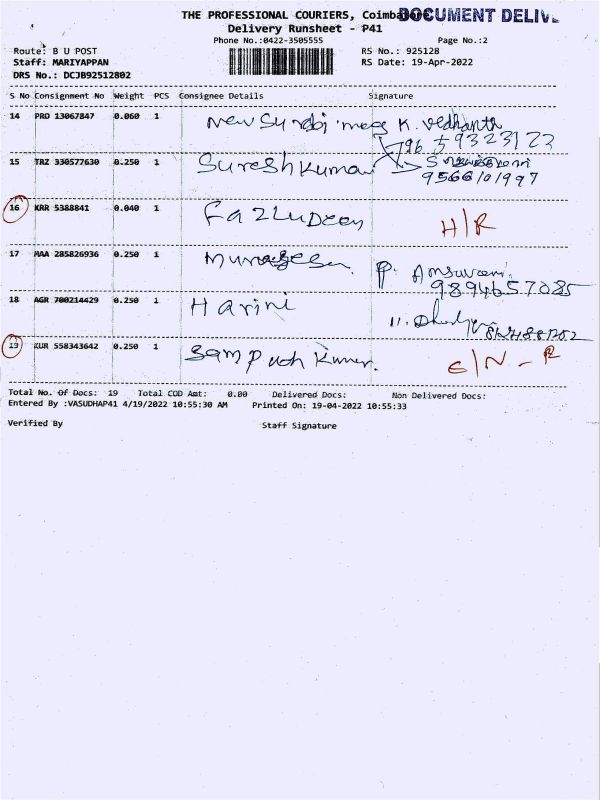 THE PROFESSIONAL COURIERS, Coimbatore
DOCUMENT DELIV
Delivery Runsheet - P41
Phone No.:0422-3505555
Page No.:2
Route: B U POST
RS No.: 925128
Staff: MARIYAPPAN
RS Date: 19-Apr-2022
DRS No.: DCJB92512802
S No Consignment No Weight PCS Consignee Details Signature
14 PRD 13067847 0.060 1 New K. Vedhanth
15 TRZ 330577630 0.250 1 Sureshkumar S
9566101997
16 KRR 5388841 0.040 1 Fazludeen H/R
17 MAA 285826936 0.250 1 Murugesan P.
9894657085
18 AGR 700214429 0.250 1 Harini
19 KUR 558343642 0.250 1 Sampath Kumar.
Total No. Of Docs: 19 Total COD Amt: 0.00 Delivered Docs: Non Delivered Docs:
Entered By :VASUDHAP41 4/19/2022 10:55:30 AM Printed On: 19-04-2022 10:55:33
Verified By Staff Signature